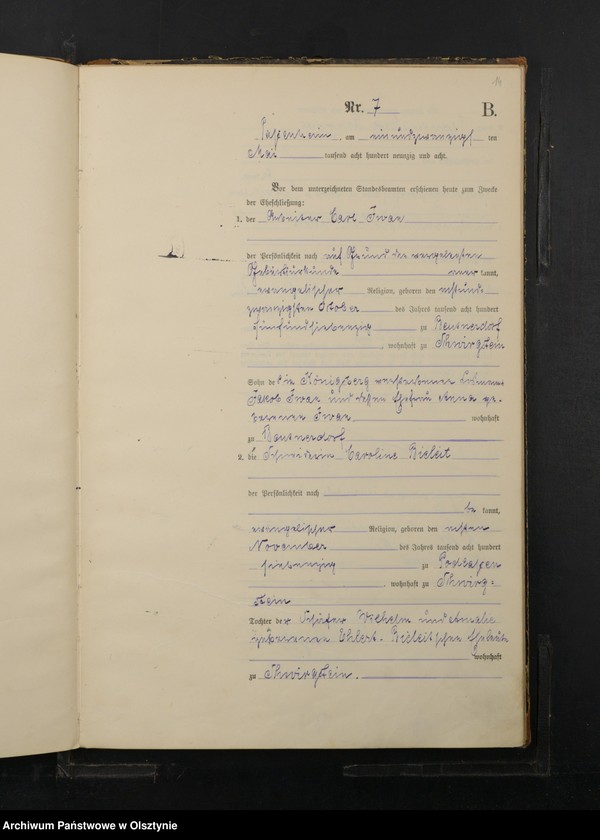 Nr. 7
B.
am einundzwanzigsten
Mai tausend acht hundert neunzig und acht.
Vor dem unterzeichneten Standesbeamten erschienen heute zum Zwecke
der Eheschließung:
1. der Arbeiter Carl Iwan
der Persönlichkeit nach auf Grund der vorgelegten
Geburtsurkunde aner kannt,
evangelischer Religion, geboren den
zwanzigsten October des Jahres tausend acht hundert
fünfundsiebenzig zu Beutnerdorf
, wohnhaft zu Thwirgstein
Sohn de s in Königsberg verstorbenen
Jakob Iwan und dessen Ehefrau Anna ge-
borenen Iwan wohnhaft
zu Beutnerdorf
2. die Schneiderin Caroline Bieleit
der Persönlichkeit nach
be kannt,
evangelischer Religion, geboren den ersten
November des Jahres tausend acht hundert
siebenzig zu Podlassen
, wohnhaft zu Thwirg-
stein
Tochter der Schäfer Wilhelm und Amalie
geborenen Ehlert- Bieleitschen Eheleute
wohnhaft
zu Thwirgstein.
Archiwum Państwowe w Olsztynie